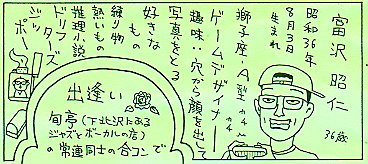 富沢 昭仁
36歳
昭和36年
8月3日
生まれ
獅子座・A型
ゲームデザイナー
趣味‥穴から顔を出して
写真をとる
カチ
カチ
好きな
もの
練り物
熱いもの
推理小説
ドリフ
ターズ
ジッ
ポー
出逢い
旬亭(下北沢にある
ジャズとボーカルの店)
の常連同士の合コンで